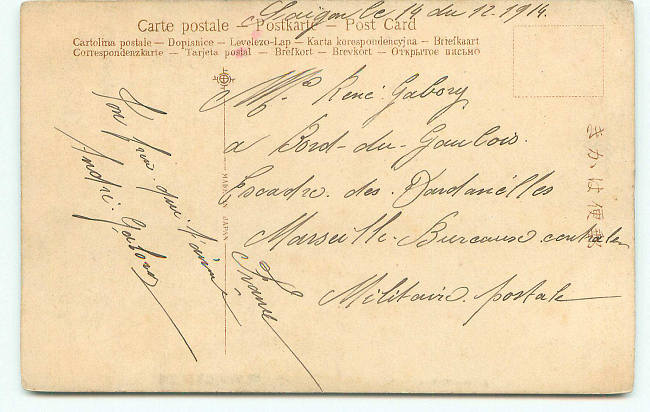 Saïgon le 14 du 12. 1914.
Carte postale — Postkarte — Post Card
Cartolina postale — Dopisnice — Levelezo-Lap — Karta korespondencyjna — Briefkaart
Correspondenzkarte — Tarjeta postal — Brefkort — Brevkort — Открытое письмо
Mr René Gabory
a Bord du Gaulois
Escadre des Dardanélles
Marseille Bureaux central
Militaire postale
France
Ton frère qui t'aime
André Gabory
MADE IN JAPAN
きかは便郵